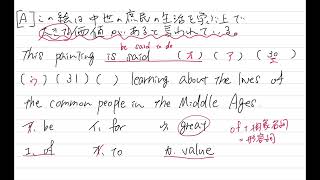 [A] この絵は中世の庶民の生活を学ぶ上で
大きな価値があると言われている。
be said to do
This painting is said (オ) (ア) (30)
(う) (31) ( ) learning about the lives of
the common people in the Middle Ages.
ア. be イ. for う great of+抽象名詞
エ. of オ. to か. value =形容詞